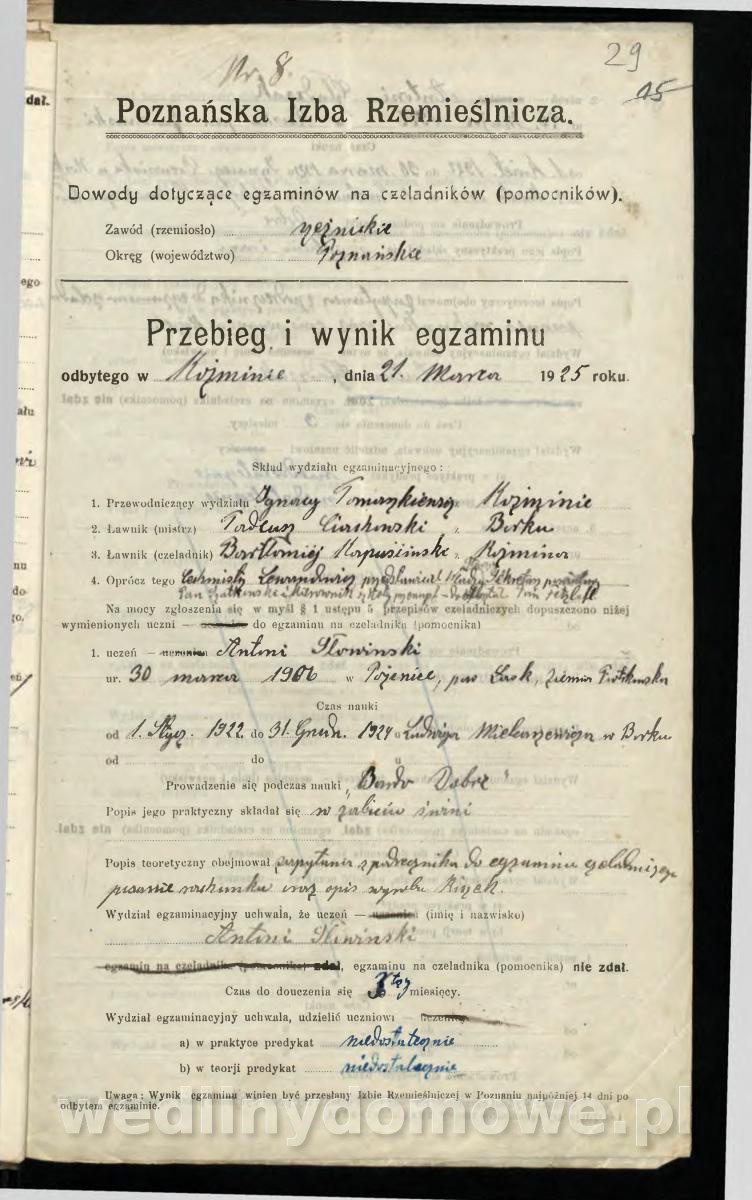 Nr. 8
29
15
Poznańska Izba Rzemieślnicza.
Dowody dotyczące egzaminów na czeladników (pomocników).
Zawód (rzemiosło) rzeźnickie
Okręg (województwo) Poznańskie
Przebieg i wynik egzaminu
odbytego w Koźminie, dnia 21. Marca 1925 roku.
Skład wydziału egzaminacyjnego:
1. Przewodniczący wydziału Ignacy Koźminie
2. Ławnik (mistrz) Tadeusz z Borku
3. Ławnik (czeladnik) Bartłomiej z Koźmina
4. Oprócz tego
Na mocy zgłoszenia się w myśl § 1 ustępu 5 przepisów czeladniczych dopuszczono niżej
wymienionych uczni — do egzaminu na czeladnika (pomocnika)
1. uczeń — uczenica Antoni Słowinski
ur. 30 marca 1906 w Pożenice, pow Łask, ziemia Piotrkowska
Czas nauki
od 1. Stycz. 1922 do 31. Grud. 1924 u Ludwiga w Borku
od do u
Prowadzenie się podczas nauki „Bardo Dobrze"
Popis jego praktyczny składał się w zabiciu świni
Popis teoretyczny obejmował zapytania z podręcznika do egzaminu
pisanie rachunku oraz opis wyrobu Kiszek.
Wydział egzaminacyjny uchwala, że uczeń — uczenica (imię i nazwisko)
Antoni Słowinski
egzamin na czeladnika (pomocnika) zdał, egzaminu na czeladnika (pomocnika) nie zdał.
Czas do douczenia się 3 miesięcy.
Wydział egzaminacyjny uchwala, udzielić uczniowi — uczenicy
a) w praktyce predykat niedostatecznie
b) w teorji predykat niedostatecznie
Uwaga: Wynik egzaminu winien być przesłany Izbie Rzemieślniczej w Poznaniu najpóźniej 14 dni po
odbytem egzaminie.
wedlinydomowe.pl